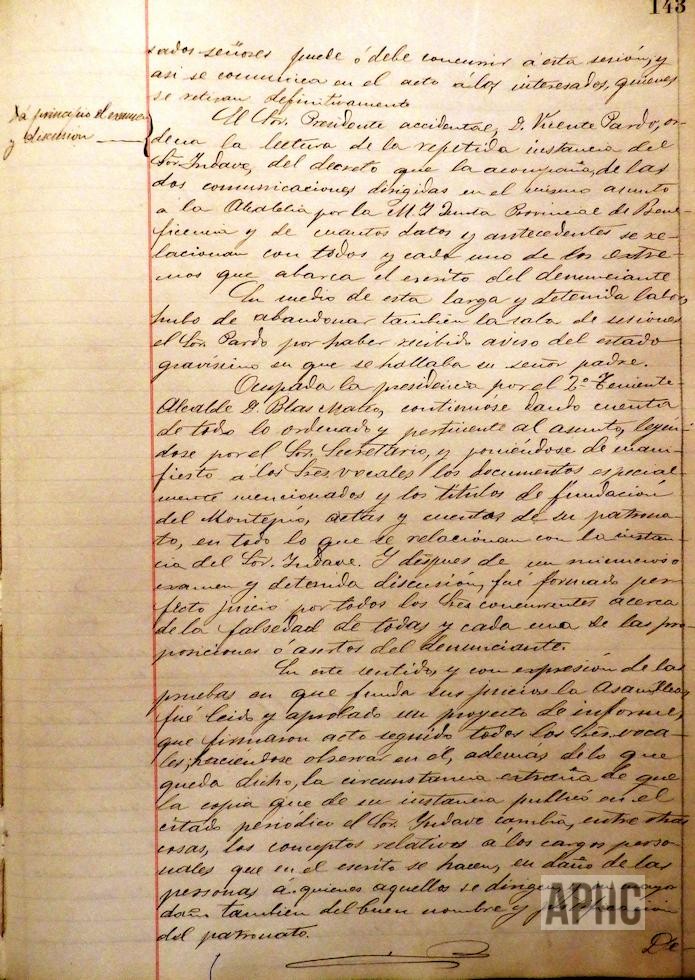 143
sados señores puede ó debe concurrir á esta sesión, y
así se comunica en el acto á los interesados, quienes
se retiran definitivamente
Dá principio el examen
y discusión
El Sor. Presidente accidental, D. Vicente Pardo, or-
dena la lectura de la repetida instancia del
Sor. Indave, del decreto que la acompaña, de las
dos comunicaciones dirigidas en el mismo asunto
á la Alcaldia por la M. I. Junta Provincial de Bene-
ficencia y de cuantos datos y antecedentes se re-
lacionan con todos y cada uno de los extre-
mos que abarca el escrito del denunciante
En medio de esta larga y detenida labor,
hubo de abandonar también la sala de sesiones
el Sor. Pardo por haber recibido aviso del estado
gravísimo en que se hallaba su señor padre.
Ocupada la presidencia por el 2º Teniente
Alcalde D. Blas Mateo, continuóse dando cuenta
de todo lo ordenado y pertinente al asunto, leyén-
dose por el Sor. Secretario, y poniéndose de mani-
fiesto á los Sres vocales los documentos especial-
mente mencionados y los títulos de fundación
del Montepio, actas y cuentas de su patrona-
to, en todo lo que se relacionan con la instan-
cia del Sor. Indave. Y después de un minucioso
examen y detenida discusion, fué formado per-
fecto juicio por todos los Sres concurrentes acerca
de la falsedad de todas y cada una de las pro-
posiciones ó asertos del denunciante.
En este sentido, y con expresión de las
pruebas en que funda sus juicios la Asamblea,
fué leido y aprobado un proyecto de informe,
que firmaron acto seguido todos los Sres. voca-
les; haciéndose observar en él, además de lo que
queda dicho, la circunstancia extraña de que
la copia que de su instancia publicó en el
citado periódico el Sor. Indave cambia, entre otras
cosas, los conceptos relativos á los cargos perso-
nales que en el escrito se hacen, en daño de las
personas á quienes aquellos se dirigen
también del buen nombre y
del patronato.
APHC
De